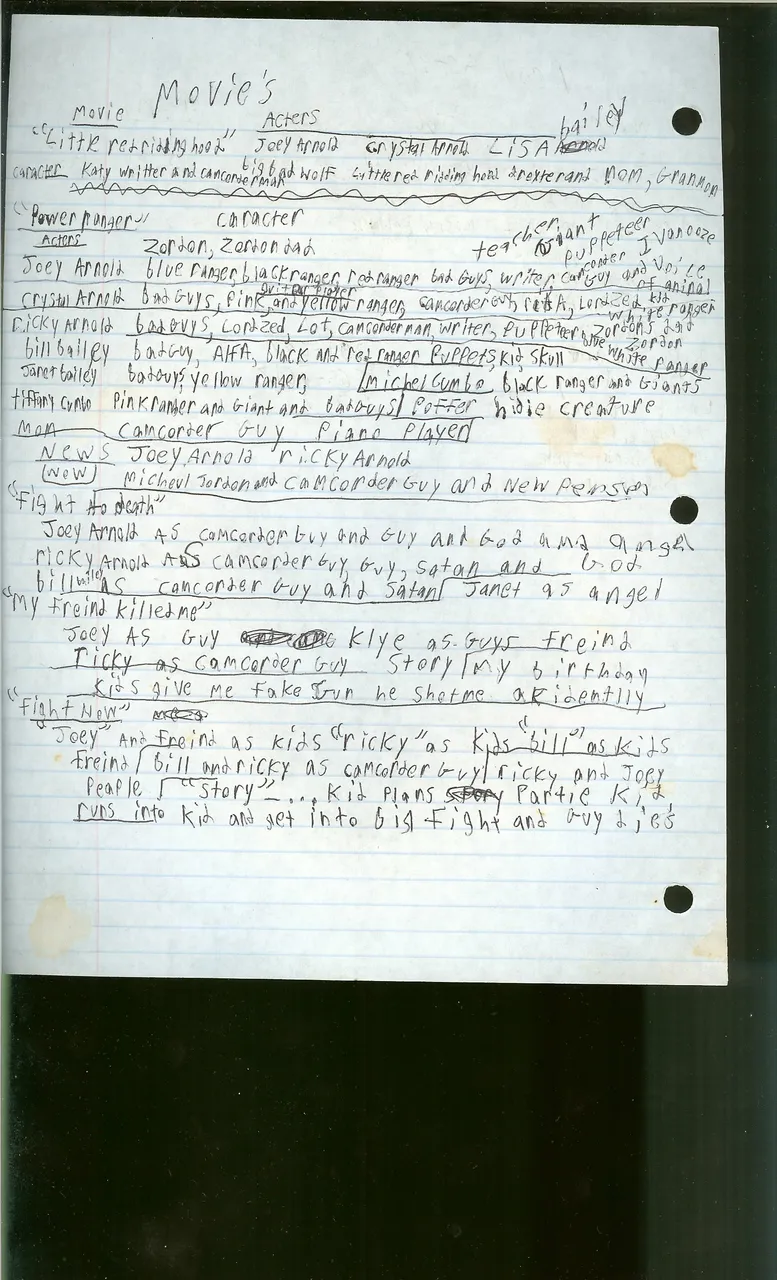 Movie's
Movie Acters
"Little red ridding hood" Joey Arnold Crystal Arnold LiSA bailey
caracter Katy writter and camcorderman big bad wolf Little red ridding hood and MOM, Granmom
"Power ranger" caracter
Acters Zordon, Zordon dad teacher, Giant puppeteer Ivanooze
Joey Arnold blue ranger, black ranger, red ranger bad guys, writer, camcorder Guy and Voice of animal
crystal Arnold bad Guys, Pink, and yellow ranger, guitar player camcorder guy, ritA, Lordzed kid white ranger
ricky Arnold bad guys, Lordzed, Lot, camcorderman, writer, Puppeteer, Zordons dad
bill bailey bad Guy, AlfA, black and red ranger Puppets, kid, Skull blue, Zordon white ranger
Janet bailey bad guys, yellow ranger, Michel Cumbo black ranger and Giants
tiffany cumbo Pink ranger and Giant and bad Guys Poffer hidie creature
Mom camcorder Guy Piano Player
News Joey Arnold ricky Arnold
(New) Micheul Jordon and camcorder Guy and New Person
"Fight to death"
Joey Arnold AS camcorder Guy and Guy and God and angel
ricky Arnold AS camcorder Guy, Guy, Satan and God
bill bailey AS camcorder Guy and Satan Janet as angel
"My Freind killed me"
Joey AS Guy Klye as Guys freind
ricky as camcorder Guy Story My birthday
kids give me fake Gun he Shot me akidentlly
"Fight New"
"Joey" And freind as kids "ricky" as Kids "bill" as kids
freind bill and ricky as camcorder Guy ricky and Joey
Peaple "Story" ... kid Plans Partie Kid,
runs into kid and get into big Fight and Guy Dies